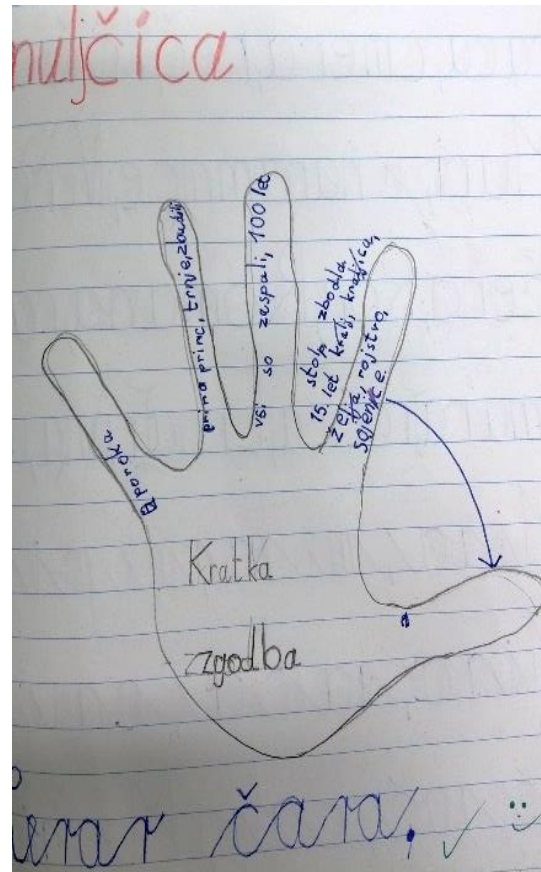 nuljčica
poroka
pride princ, trnje, zbudi
vsi so zaspali, 100 let
stolp zbodla
15 let kralj, kraljica,
želja, rojstvo,
sojenice
Kratka
zgodba
čara.